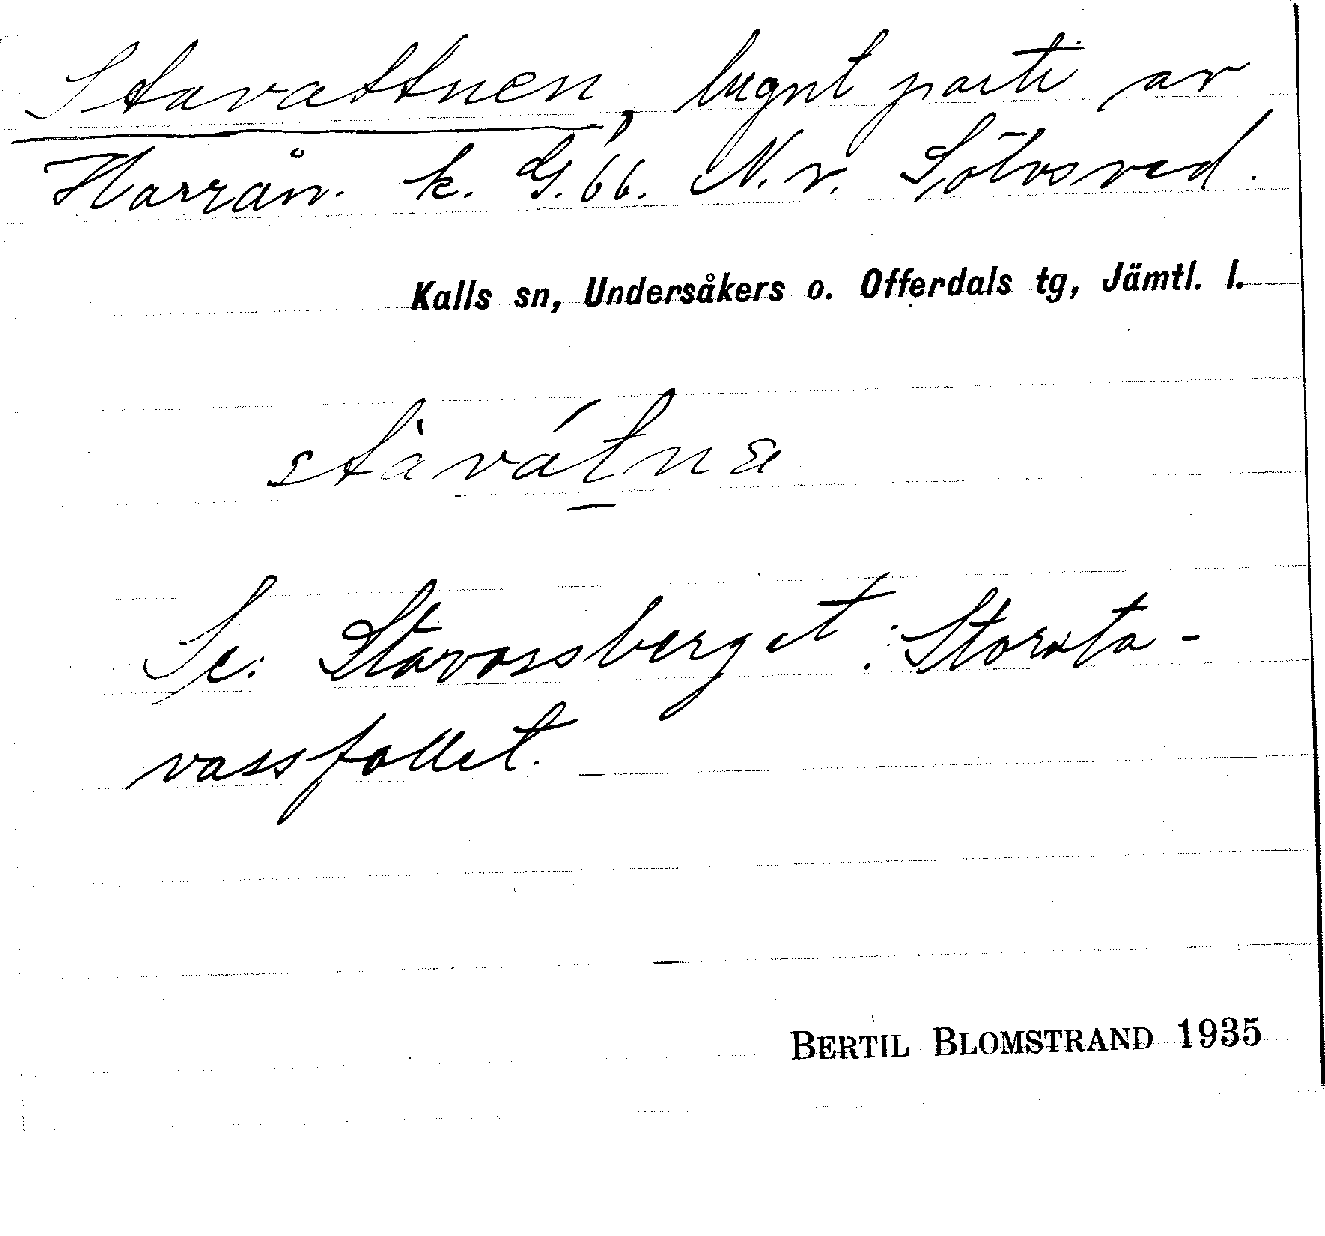 Stavattnen, lugnt parti av
Harrån. k. G. 66. N.v. Sölvsved.
Kalls sn, Undersåkers o. Offerdals tg, Jämtl. l.
stàvátnæ
Se: Stavassberget: Storsta-
vassfallet.
BERTIL BLOMSTRAND 1935